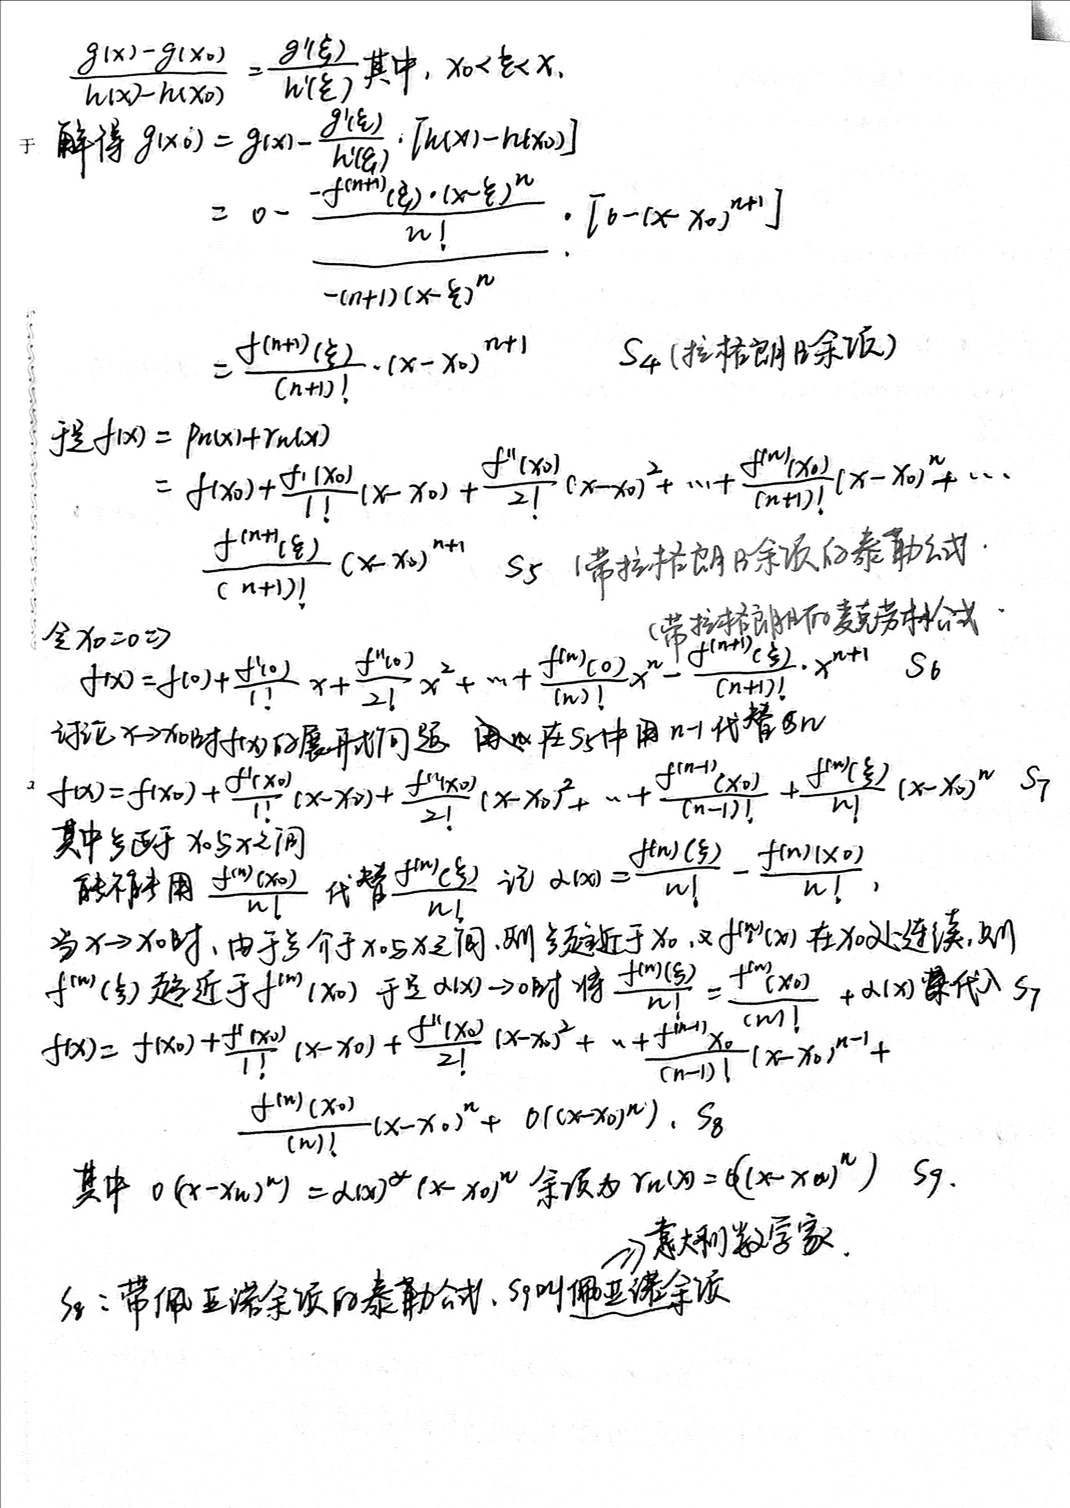 \frac{g(x)-g(x_0)}{h(x)-h(x_0)} = \frac{g'(ξ)}{h'(ξ)} 其中, x_0<ξ<x,
于
解得 g(x_0) = g(x) - \frac{g'(ξ)}{h'(ξ)} · [h(x)-h(x_0)]
= 0 - \frac{\frac{-f^{(n+1)}(ξ)·(x-ξ)^n}{n!}}{-(n+1)(x-ξ)^n} · [0-(x-x_0)^{n+1}]
= \frac{f^{(n+1)}(ξ)}{(n+1)!} · (x-x_0)^{n+1} S4 (拉格朗日余项)
于是 f(x) = Pn(x)+rn(x)
= f(x_0) + \frac{f'(x_0)}{1!}(x-x_0) + \frac{f''(x_0)}{2!}(x-x_0)^2 + … + \frac{f^{(n)}(x_0)}{(n+1)!}(x-x_0)^n + …
\frac{f^{(n+1}(ξ)}{(n+1)!}(x-x_0)^{n+1} S5 (带拉格朗日余项的泰勒公式.
(带拉格朗日的麦克劳林公式
令x_0=0⇒
f(x) = f(0) + \frac{f'(0)}{1!}x + \frac{f''(0)}{2!}x^2 + … + \frac{f^{(n)}(0)}{(n)!}x^n - \frac{f^{(n+1)}(ξ)}{(n+1)!}·x^{n+1} S6
讨论x→x_0时f(x)的展开式问题 在S5中用n-1代替n
f(x) = f(x_0) + \frac{f'(x_0)}{1!}(x-x_0) + \frac{f''(x_0)}{2!}(x-x_0)^2 + … + \frac{f^{(n-1)}(x_0)}{(n-1)!} + \frac{f^{(n)}(ξ)}{n!}(x-x_0)^n S7
其中ξ在于x_0与x之间
能不能用 \frac{f^{(n)}(x_0)}{n!} 代替 \frac{f^{(n)}(ξ)}{n!} 记 α(x) = \frac{f(n)(ξ)}{n!} - \frac{f(n)(x_0)}{n!},
当x→x_0时,由于ξ介于x_0与x之间,则ξ趋近于x_0,又f^{(n)}(x)在x_0处连续,则
f^{(n)}(ξ)趋近于f^{(n)}(x_0) 于是α(x)→0时 将 \frac{f(n)(ξ)}{n!} = \frac{f^{(n)}(x_0)}{(n)!} + α(x) 代入S7
f(x) = f(x_0) + \frac{f'(x_0)}{1!}(x-x_0) + \frac{f''(x_0)}{2!}(x-x_0)^2 + … + \frac{f^{(n-1)}x_0}{(n-1)!}(x-x_0)^{n-1} +
\frac{f^{(n)}(x_0)}{(n)!}(x-x_0)^n + o((x-x_0)^n). S8
其中 o((x-x_0)^n) = α(x)(x-x_0)^n 余项为 rn(x) = o((x-x_0)^n) S9.
⇒意大利数学家.
S8:带佩亚诺余项的泰勒公式、S9叫佩亚诺余项